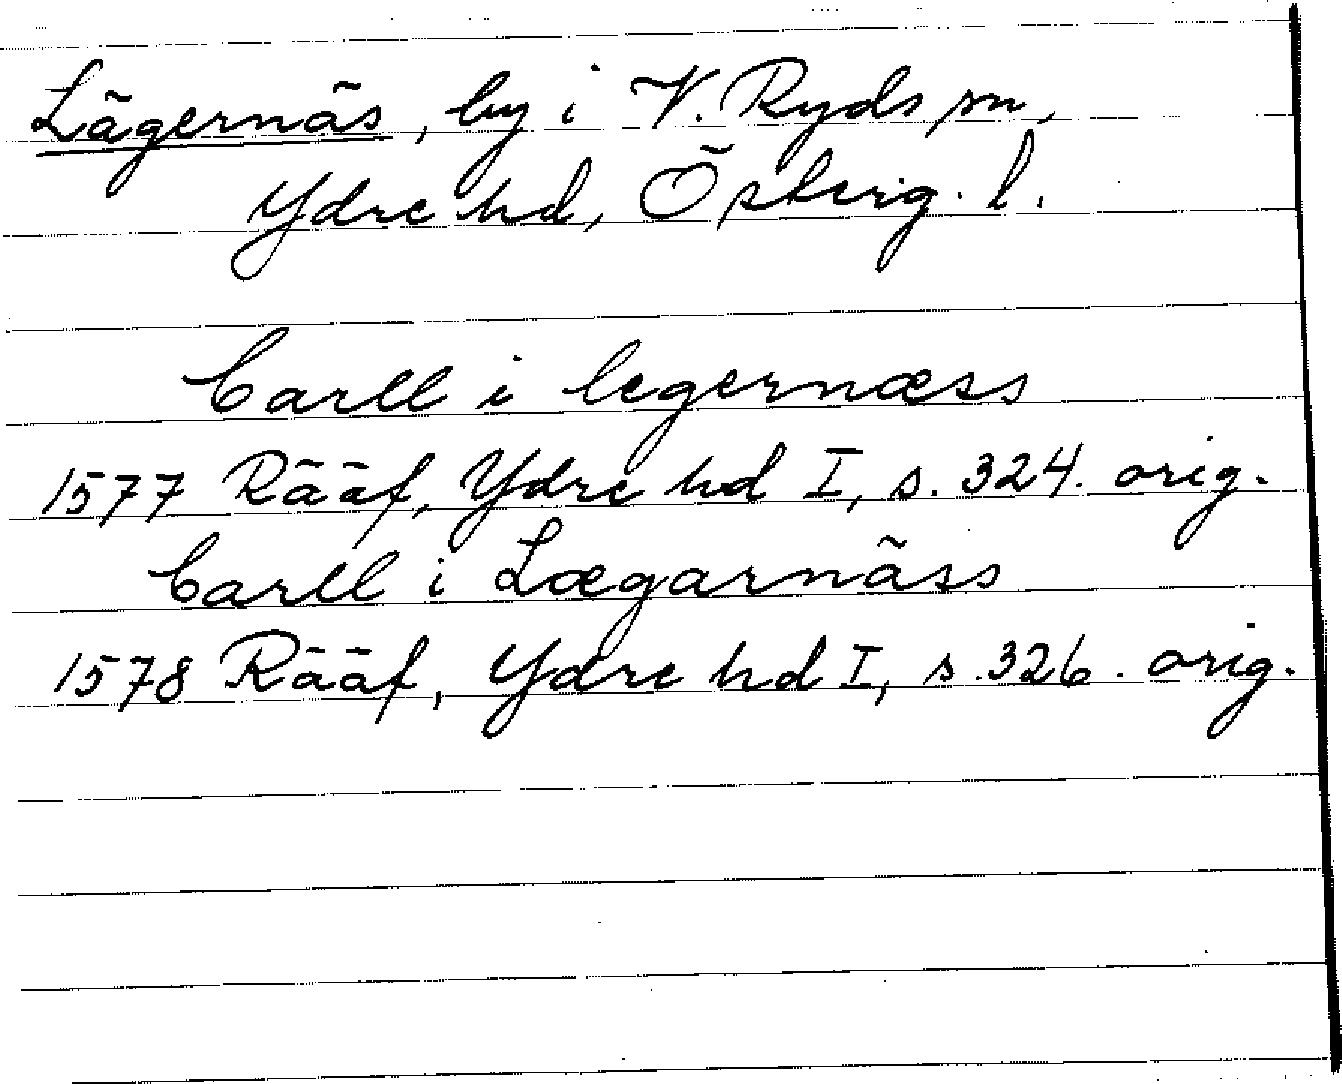 Lägernäs, by i V. Ryds sn,
Ydre hd, Österg. l.
Carll i legernæss
1577 Rääf, Ydre hd I, s. 324. orig.
Carll i Lægarnäss
1578 Rääf, Ydre hd I, s. 326. orig.